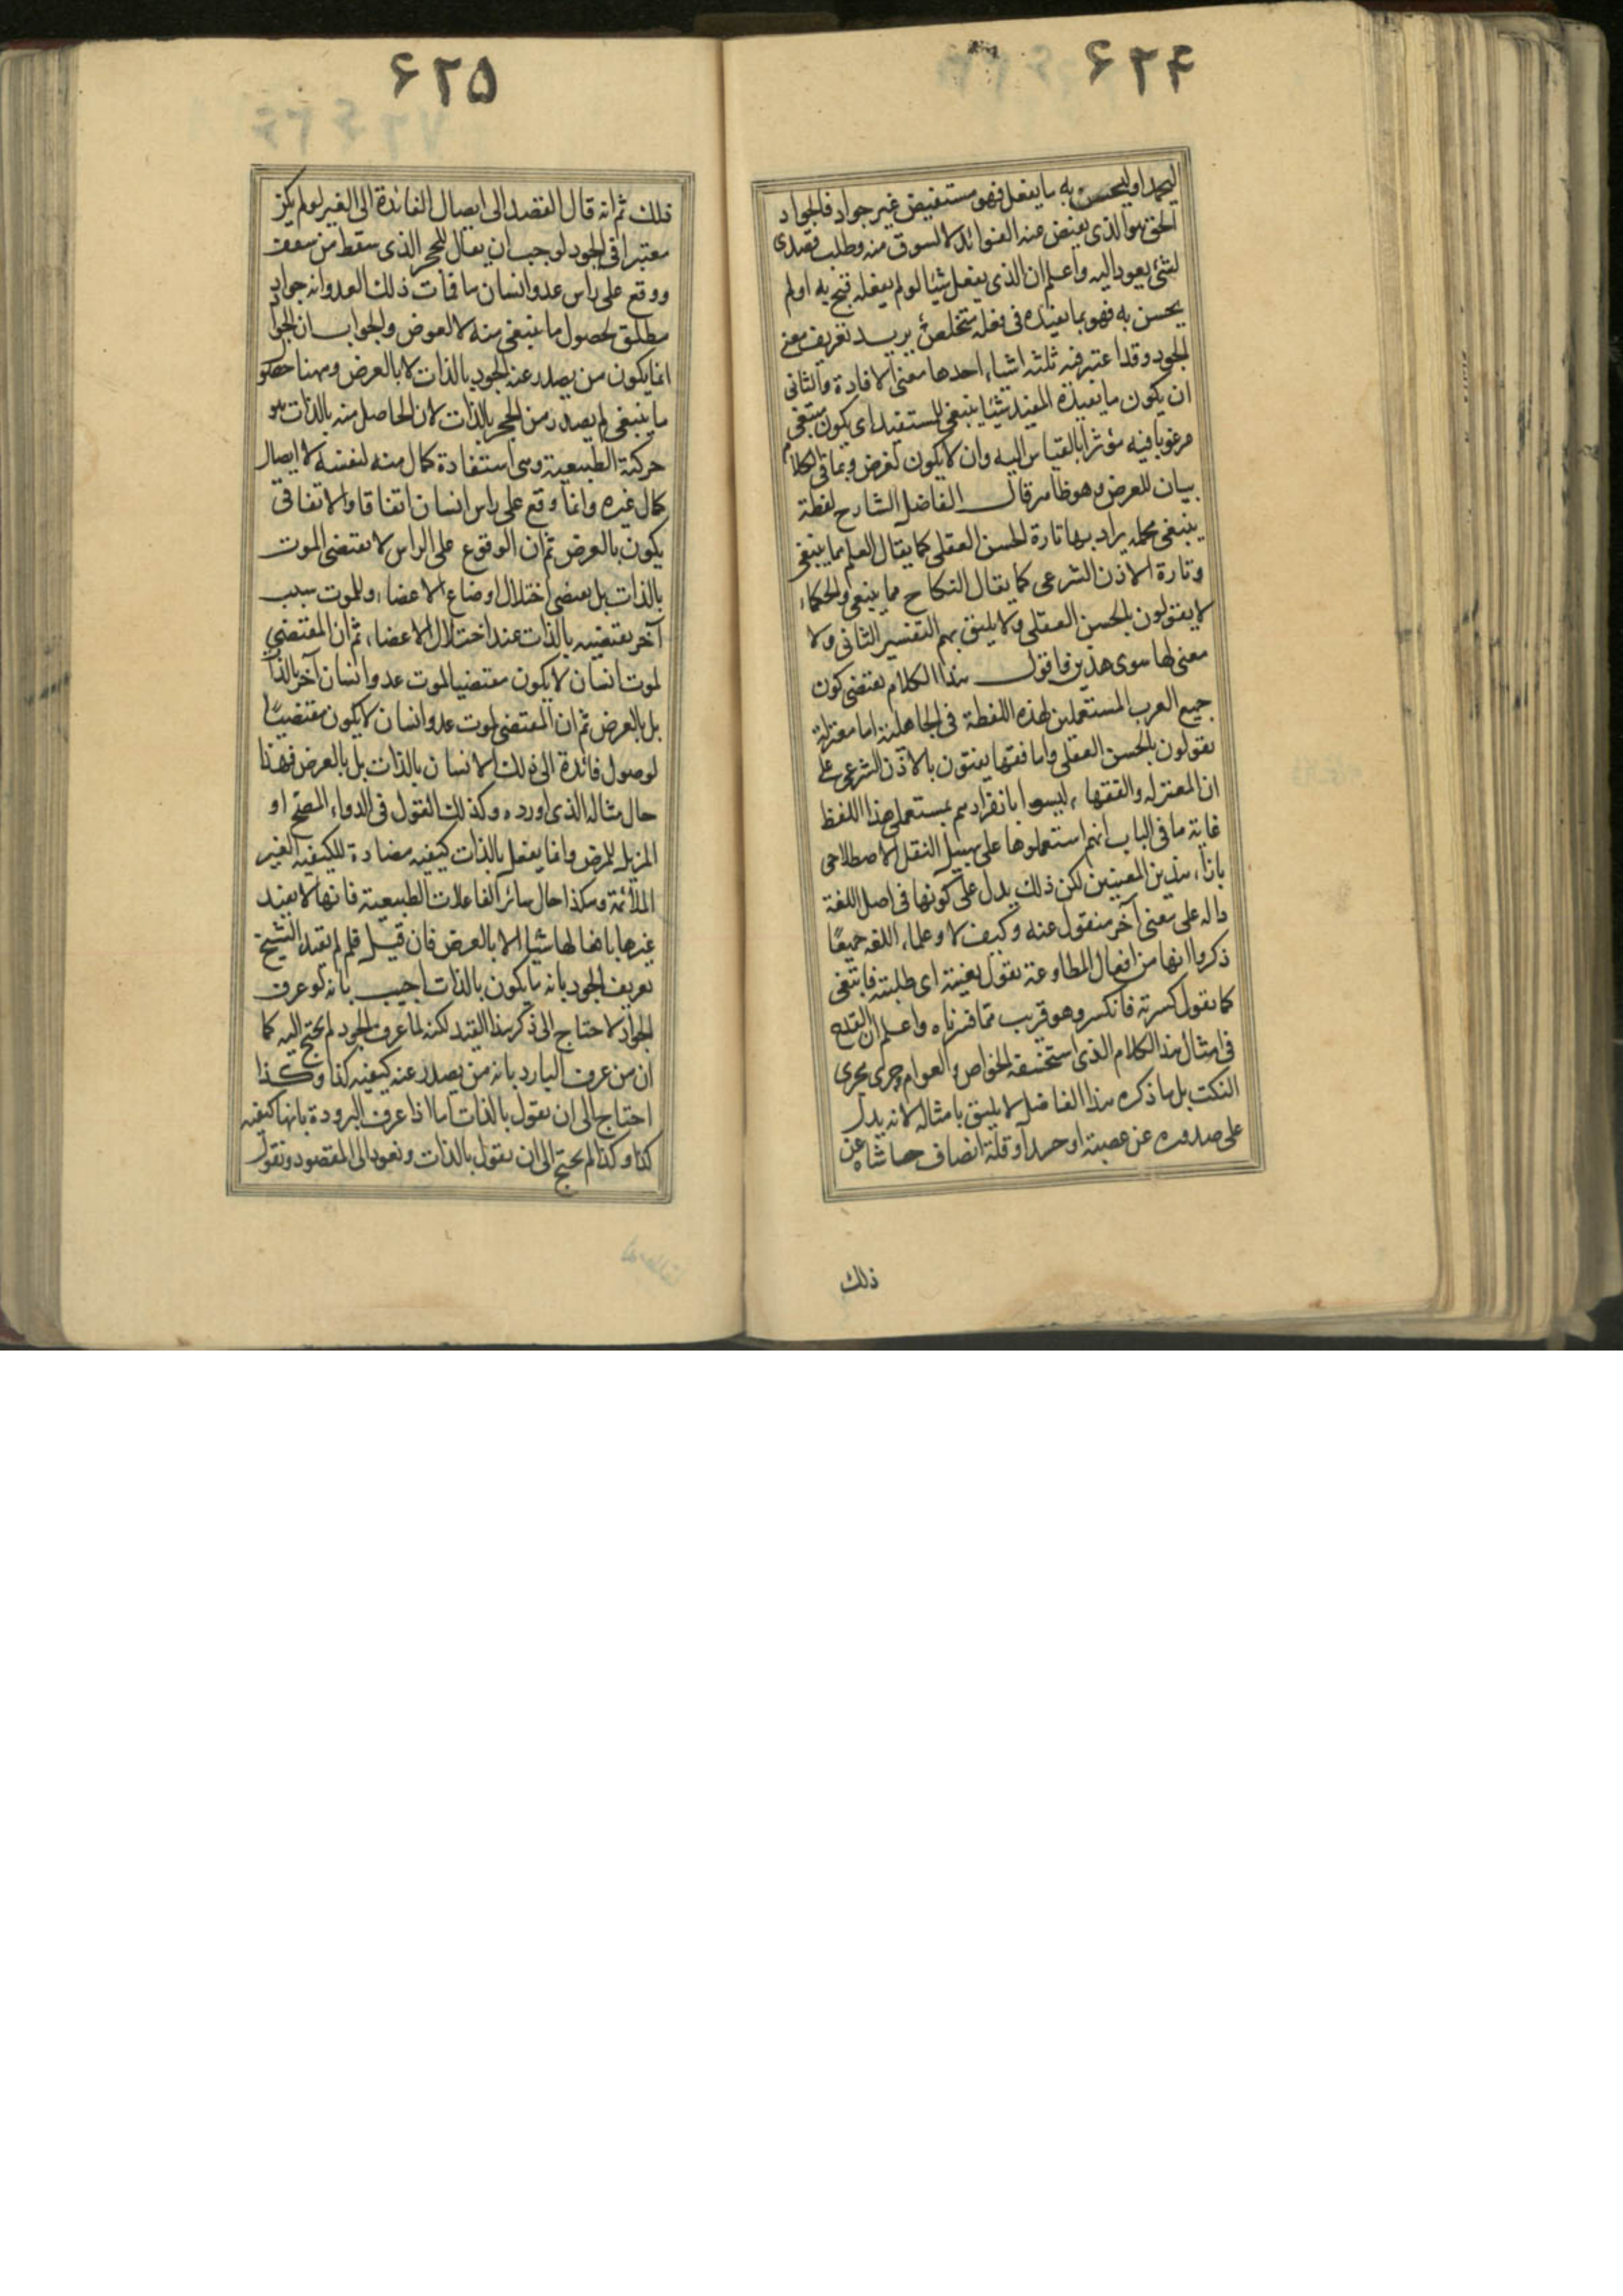 ۶۲۴
ليحمد او ليحسن به ما يفعل فهو مستفيض غير جواد فالجواد
الحق هو الذى يفيض عنه الفوائد لا لشوق منه وطلب قصدى
لشئ يعود اليه واعلم ان الذى يفعل شيئا لو لم يفعله قبح به او لم
يحسن به فهو بما يفيده فى فعله متخلص يريد تعريف معنى
الجود وقد اعتبر فيه ثلثه اشياء احدها معنى الافادة والثانى
ان يكون ما يفيده المفيد شيئا ينبغى للمستفيد اى يكون مبتغى
مرغوبا فيه مؤثرا بالقياس اليه وان لا يكون لغرض وباقى الكلام
بيان للعرض وهو ظاهر قال الفاضل الشارح لفظة
ينبغى مجمله يراد بها تارة الحسن العقلى كما يقال العلم مما ينبغى
وتارة الاذن الشرعى كما يقال النكاح مما ينبغى والحكماء
لا يقولون بالحسن العقلى ولا يليق بهم التفسير الثانى ولا
معنى لها سوى هذين فاقول هذا الكلام يقتضى كون
جميع العرب المستعملين لهذه اللفظة فى الجاهلية اما معتزلة
يقولون بالحسن العقلى واما فقها يفتون بالاذن الشرعى على
ان المعتزله والفقهاء ليسوا بانفرادهم بمستعملى هذا اللفظ
غاية ما فى الباب انهم استعملوها على سبيل النقل الاصطلاحى
بازاء هذين المعنيين لكن ذلك يدل على كونها فى اصل اللغة
داله على معنى آخر منقول عنه وكيف لا وعلماء اللغه جميعًا
ذكروا انها من افعال المطاوعة يقول بغيته اى طلبته فابتغى
كما يقول كسرته فانكسر وهو قريب مما فسرناه واعلم ان القدح
فى امثال هذا الكلام الذى استحسنه الخواص والعوام وجرى مجرى
النكت بل ما ذكره هذا الفاضل لا يليق بامثاله لانه يدل
على صدوره عن عصبية او حسد او قلة انصاف حاشاه عن
ذلك
۶۲۵
ذلك ثم انه قال القصد الى ايصال الفائدة الى الغير لو لم يكن
معتبرا فى الجود لوجب ان يقال للحجر الذى سقط من سقف
ووقع على راس عدو انسان ما فمات ذلك العدو انه جواد
مطلق لحصول ما ينبغى منه لا لعوض والجواب ان الجواد
انما يكون من يصدر عنه الجود بالذات لا بالعرض وههنا حصول
ما ينبغى لم يصدر من الحجر بالذات لان الحاصل منه بالذات هو
حركته الطبيعية وهى استفادة كمال منه لنفسه لا ايصال
كمال غيره وانما وقع على راس انسان اتفاقا والاتفاقى
يكون بالعرض ثم ان الوقوع على الراس لا يقتضى الموت
بالذات بل يقتضى اختلال اوضاع الاعضاء وللموت سبب
آخر يقتضيه بالذات عند اختلال الاعضاء ثم ان المقتضى
لموت انسان لا يكون مقتضيا لموت عدو انسان آخر بالذات
بل بالعرض ثم ان المقتضى لموت عدو انسان لا يكون مقتضيًا
لوصول فائدة الى ذلك الانسان بالذات بل بالعرض فهذا
حال مثاله الذى اورده وكذلك القول فى الدواء المصحح او
المزيل للمرض وانما يفعل بالذات كيفيه مضادة للكيفيه الغير
الملائمة وهكذا حال سائر الفاعلات الطبيعية فانها لا يفيد
غيرها بافعالها شيئا الا بالعرض فان قيل فلم لم يقيد الشيخ
تعريف الجود بانه ما يكون بالذات اجيب بانه لو عرف
الجواد لاحتاج الى ذكر هذا القيد لكنه لما عرف الجود لم يحتج اليه كما
ان من عرف البارد بانه من يصدر عنه كيفيه كذا وكذا
احتاج الى ان يقول بالذات اما اذا عرف البرودة بانها كيفيه
كذا وكذا لم يحتج الى ان يقول بالذات ونعود الى المقصود ونقول